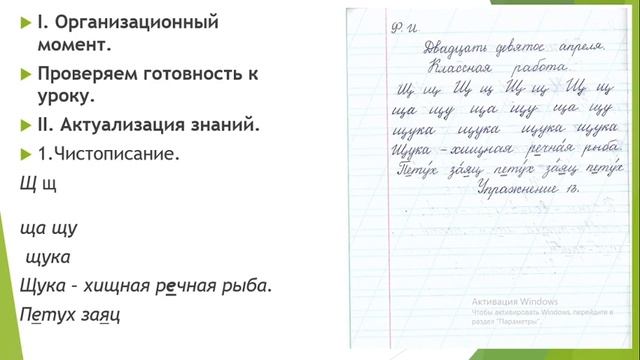 I. Организационный
момент.
Проверяем готовность к
уроку.
II. Актуализация знаний.
1.Чистописание.
Щ щ
ща щу
щука
Щука – хищная речная рыба.
Петух заяц
Ф. И.
Двадцать девятое апреля.
Классная работа.
Щ щ Щ щ Щ щ Щ щ
ща щу ща щу ща щу
щука щука щука щука
Щука – хищная речная рыба.
Пету́х за́яц пету́х за́яц пету́х
Упражнение 13.
Активация Windows
Чтобы активировать Windows, перейдите в
раздел "Параметры".